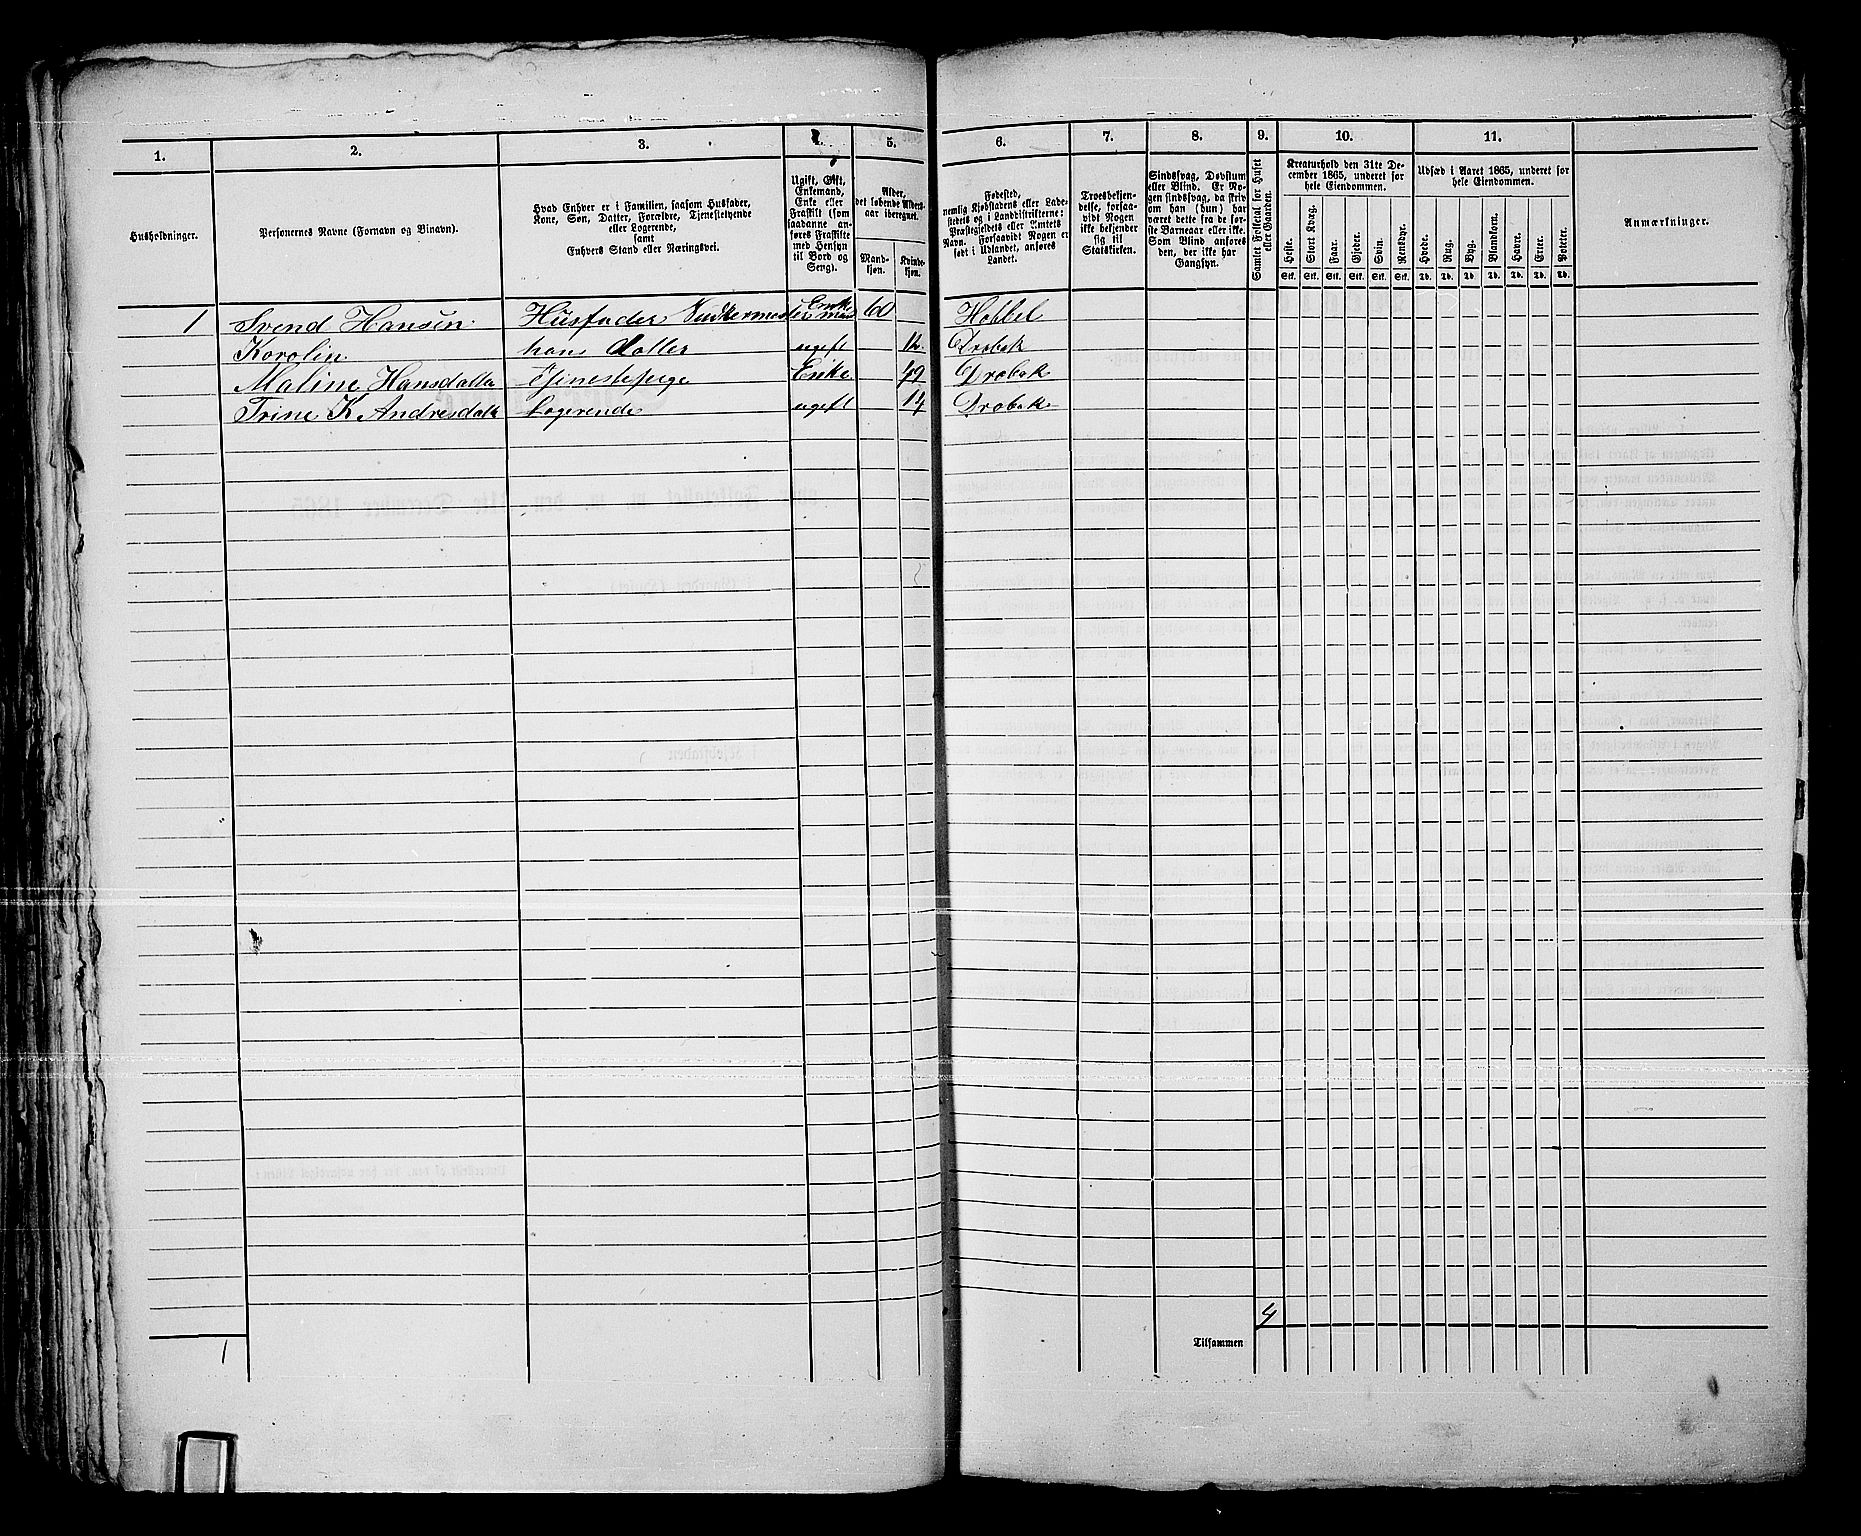 1. 2. 3. 4. 5. 6. 7. 8. 9. 10. 11.
Husholdninger.
Personernes Navne (Fornavn og Binavn).
Hvad Enhver er i Familien, saasom Husfader,
Kone, Søn, Datter, Forældre, Tjenestetyende
eller Logerende,
samt
Enhvers Stand eller Næringsvei.
Ugift, Gift,
Enkemand,
Enke eller
Fraskilt (som
saadanne an-
føres Fraskilte
med Hensyn
til Bord og
Seng).
Alder,
det løbende Alders-
aar iberegnet.
Mand-
kjøn.
Kvinde-
kjøn.
Fødested,
nemlig Kjøbstadens eller Lade-
stedets og i Landdistrikterne:
Præstegjeldets eller Amtets
Navn. Forsaavidt Nogen er
født i Udlandet, anføres
Landet.
Troesbekjen-
delse, forsaa-
vidt Nogen
ikke bekjender
sig til
Statskirken.
Sindssvag, Døvstum
eller Blind. Er No-
gen sindssvag, da skriv
om han (hun) har
været dette fra de før-
ste Barneaar eller ikke.
Som Blind anføres
den, der ikke har
Gangsyn.
Samlet Folketal for Huset
eller Gaarden.
Kreaturhold den 31te De-
cember 1865, underet for
hele Eiendommen.
Heste. Stort Kvæg. Faar. Gjeder. Svin. Rensdyr.
Stk. Stk. Stk. Stk. Stk. Stk.
Udsæd i Aaret 1865, underet for
hele Eiendommen.
Hvede. Rug. Byg. Blandkorn. Havre. Erter. Poteter.
Td. Td. Td. Td. Td. Td. Td.
Anmærkninger.
1 Svend Hansen Husfader Enkemand 60 Hobbel
Karolin hans Datter ugift 12 Drøbak
Maline Hansdatter Tjenestepige Enke 49 Drøbak
Trine K Andresdatr Logerende ugift 14 Drøbak
4
Tilsammen
1